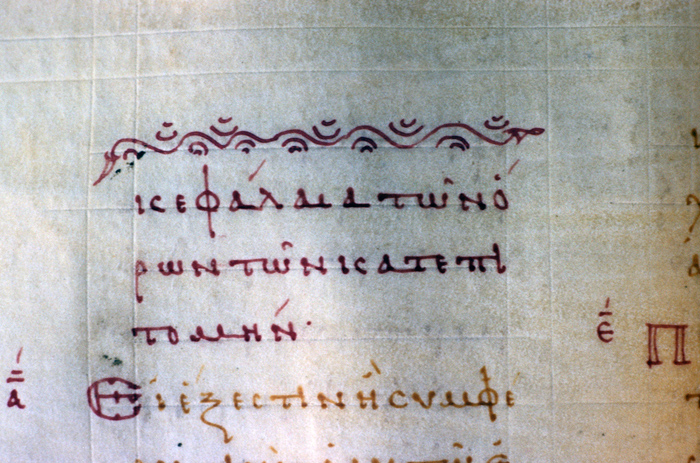 κεφάλαια τῶν ὅ
ρων τῶν κατεπι
τομήν·
ά Εἰ ἔξεστιν ἢ συμφέ
έ Π